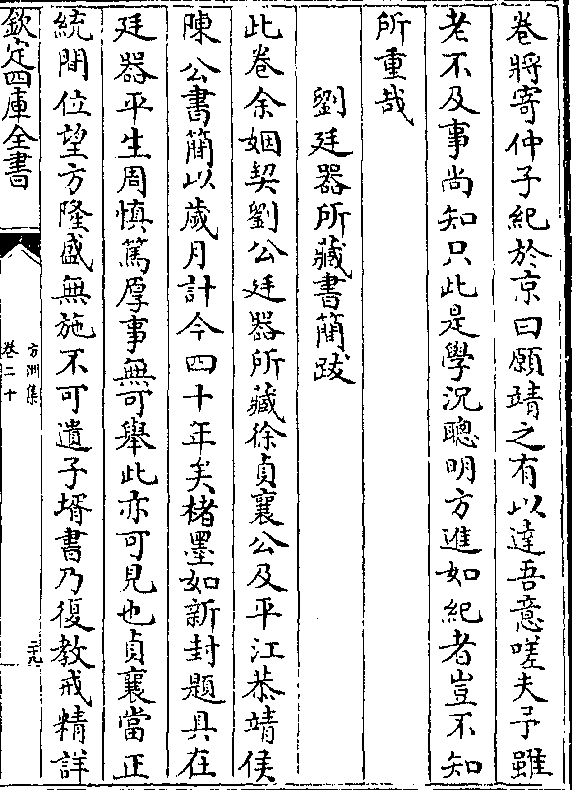 卷將寄仲子紀於京曰願靖之有以達吾意嗟夫予雖
老不及事尚知只此是學況聰明方進如紀者豈不知
所重哉
劉廷器所藏書簡跋
此卷余姻契劉公廷器所藏徐貞襄公及平江恭靖侯
陳公書簡以歲月計今四十年矣楮墨如新封題具在
廷器平生周慎篤厚事無可舉此亦可見也貞襄當正
統間位望方隆盛無施不可遺子壻書乃復教戒精詳
欽定四庫全書
方洲集
卷二十
三十九